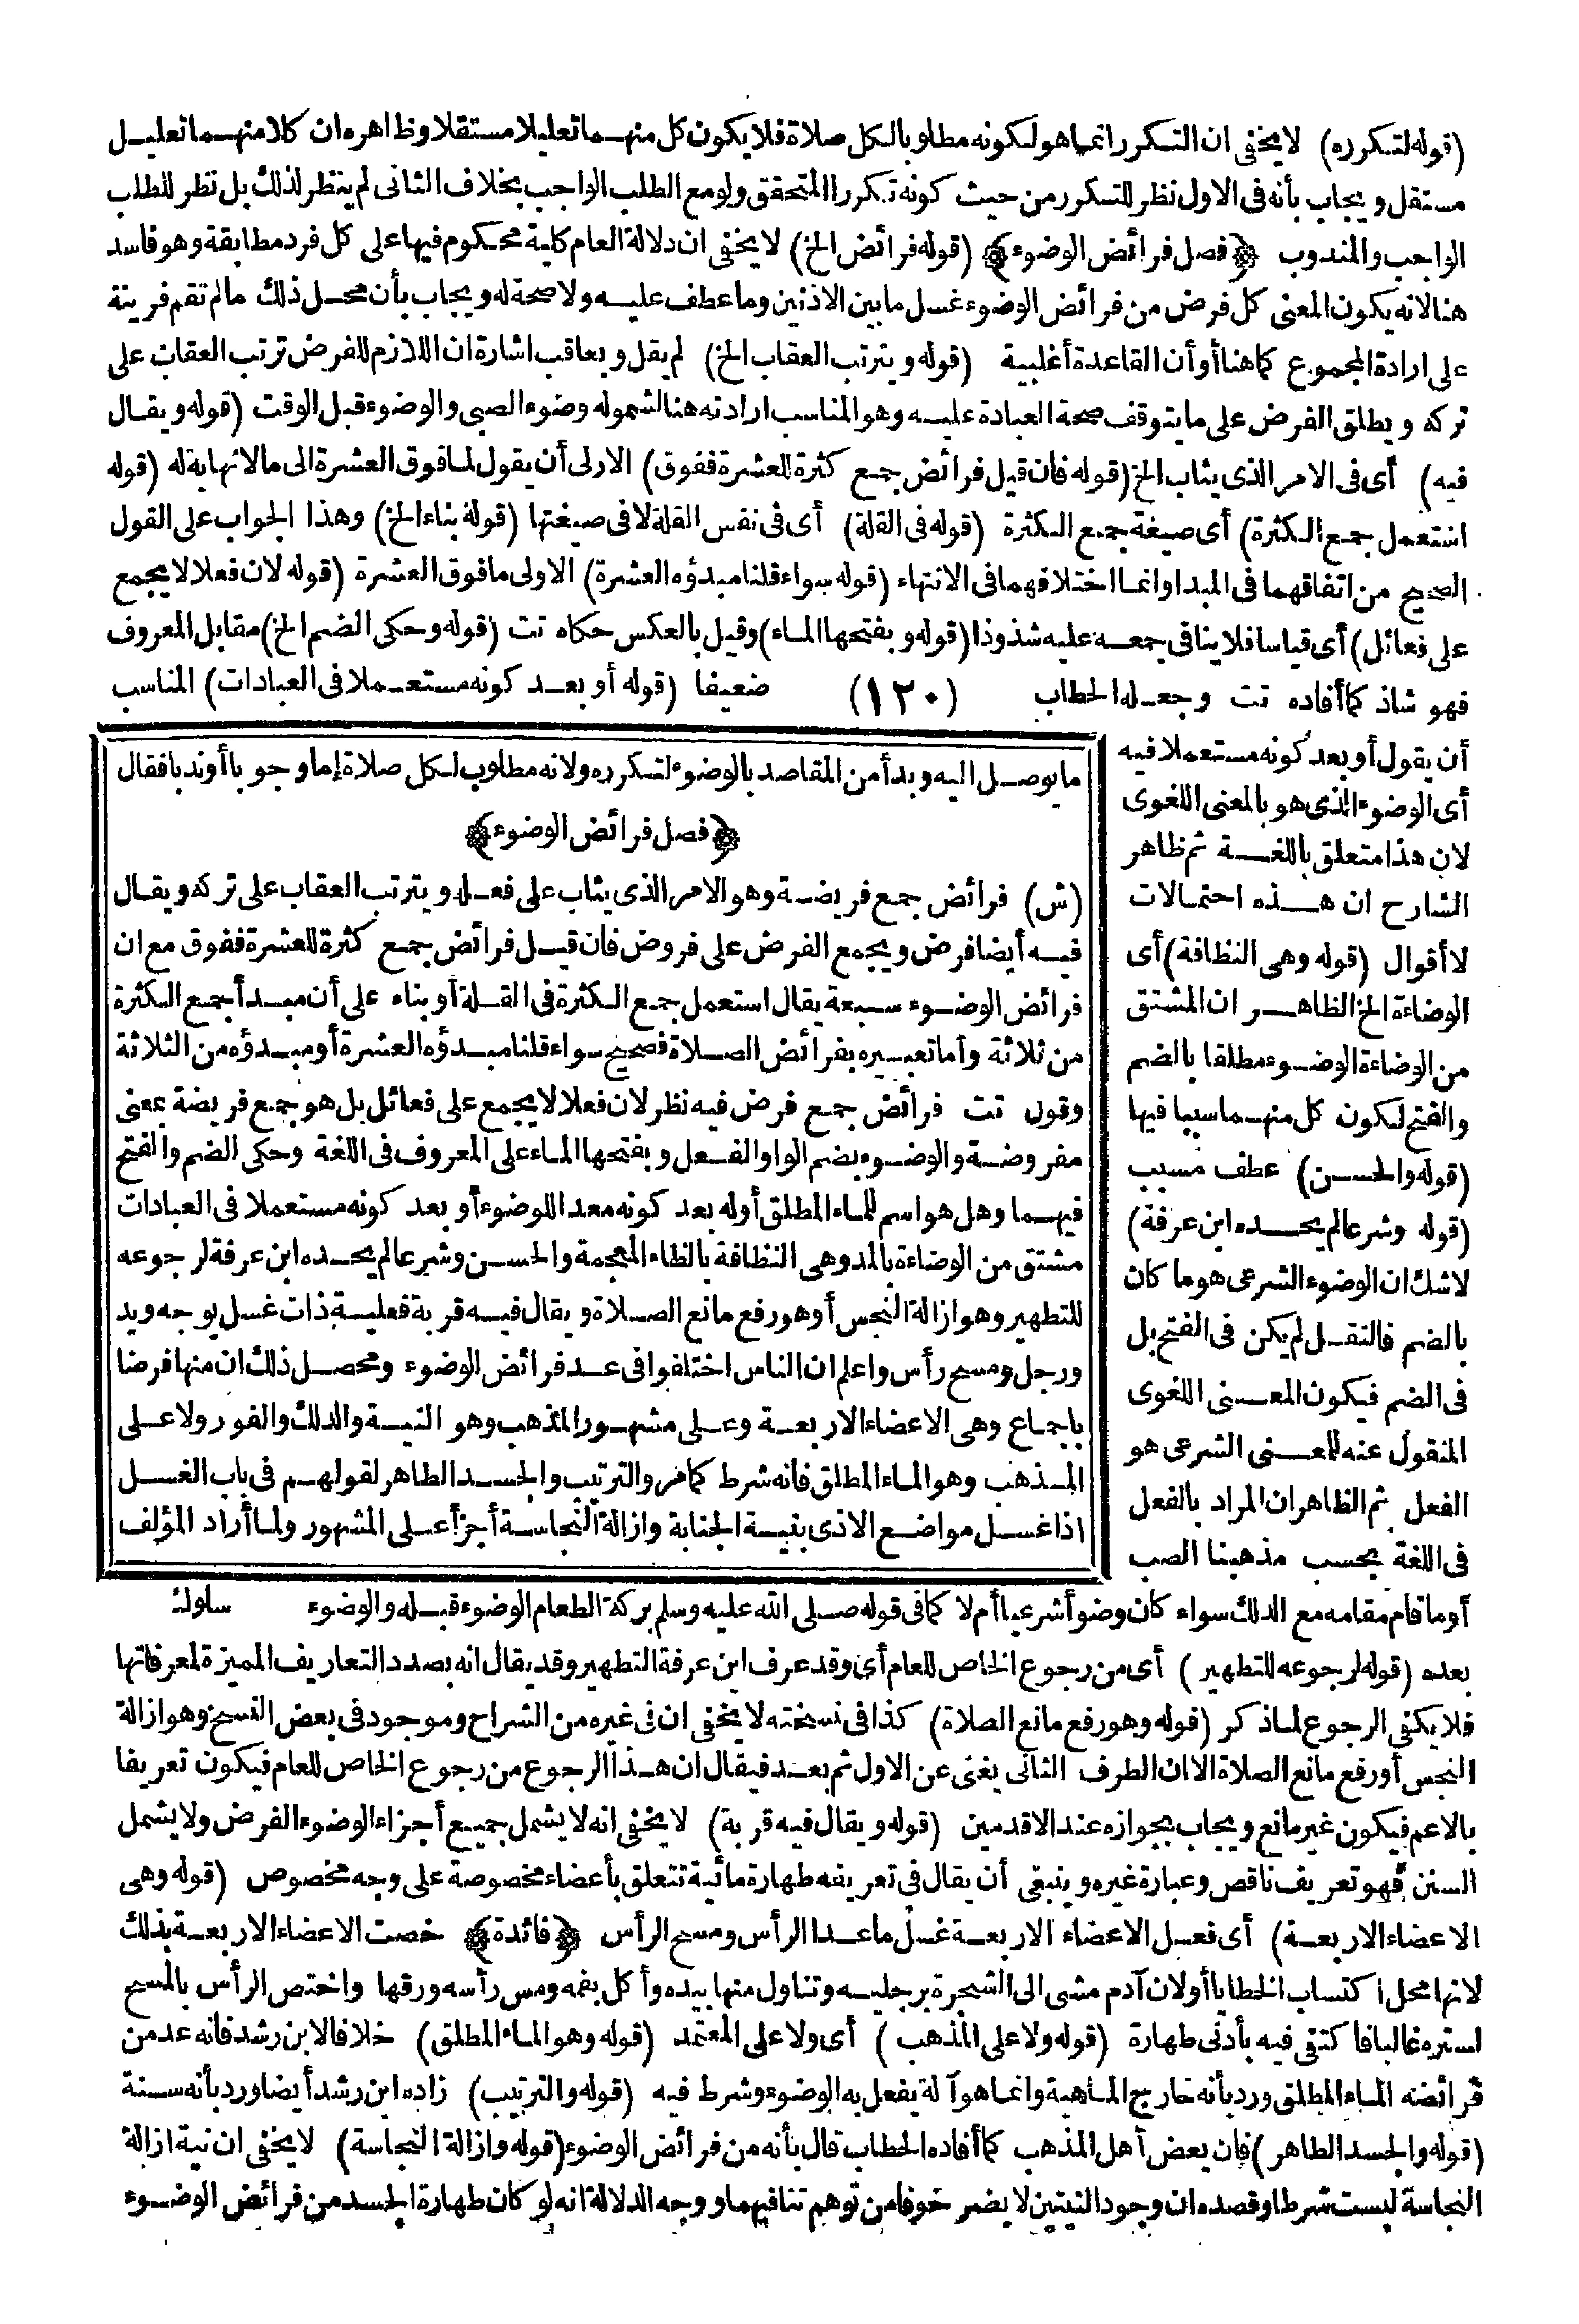 (قوله لتكرره) لا يخفى ان التكرر انما هو لكونه مطلوبا لكل صلاة فلا يكون كل منهما تعليلا مستقلا وظاهره ان كلا منهما تعليل
مستقل ويجاب بأنه في الاول نظر للتكرر من حيث كونه تكررا المتحقق ولو مع الطلب الواجب بخلاف الثاني لم ينظر لذلك بل نظر للطلب
الواجب والمندوب ﴿فصل فرائض الوضوء﴾ (قوله فرائض الخ) لا يخفى ان دلالة العام كلية محكوم فيها على كل فرد مطابقة وهو فاسد
هنا لانه يكون المعنى كل فرض من فرائض الوضوء غسل ما بين الاذنين وما عطف عليه ولا صحة له ويجاب بأن محل ذلك ما لم تقم قرينة
على ارادة المجموع كما هنا أو أن القاعدة أغلبية (قوله ويترتب العقاب الخ) لم يقل ويعاقب اشارة ان اللازم للفرض ترتب العقاب على
تركه ويطلق الفرض على ما يتوقف صحة العبادة عليه وهو المناسب ارادته هنا لشموله وضوء الصبي والوضوء قبل الوقت (قوله ويقال
فيه) أى في الامر الذى يثاب الخ (قوله فان قيل فرائض جمع كثرة للعشرة ففوق) الاولى أن يقول لما فوق العشرة الى ما لا نهاية له (قوله
استعمل جمع الكثرة) أى صيغة جمع الكثرة (قوله في القلة) أى في نفس القلة لا في صيغتها (قوله بناء الخ) وهذا الجواب على القول
الصحيح من اتفاقهما في المبدا وانما اختلافهما في الانتهاء (قوله سواء قلنا مبدؤه العشرة) الاولى ما فوق العشرة (قوله لان فعلا لا يجمع
على فعائل) أى قياسا فلا ينافي جمعه عليه شذوذا (قوله وبفتحها الماء) وقيل بالعكس حكاه تت (قوله وحكى الضم الخ) مقابل المعروف
فهو شاذ كما أفاده تت وجعله الحطاب (١٢٠) ضعيفا (قوله أو بعد كونه مستعملا في العبادات) المناسب
أن يقول أو بعد كونه مستعملا فيه
أى الوضوء الذى هو بالمعنى اللغوى
لان هذا متعلق باللغة ثم ظاهر
الشارح ان هذه احتمالات
لا أقوال (قوله وهى النظافة) أى
الوضاءة الخ الظاهر ان المشتق
من الوضاءة الوضوء مطلقا بالضم
والفتح ليكون كل منهما سببا فيها
(قوله والحسن) عطف مسبب
(قوله وشرعا لم يحده ابن عرفة)
لا شك ان الوضوء الشرعى هو ما كان
بالضم فالنقل لم يكن في الفتح بل
في الضم فيكون المعنى اللغوى
المنقول عنه للمعنى الشرعى هو
الفعل ثم الظاهر ان المراد بالفعل
في اللغة بحسب مذهبنا الصب
ما يوصل اليه وبدأ من المقاصد بالوضوء لتكرره ولانه مطلوب لكل صلاة إما وجوبا أو ندبا فقال
﴿فصل فرائض الوضوء﴾
(ش) فرائض جمع فريضة وهو الامر الذى يثاب على فعله ويترتب العقاب على تركه ويقال
فيه أيضا فرض ويجمع الفرض على فروض فان قيل فرائض جمع كثرة للعشرة ففوق مع ان
فرائض الوضوء سبعة يقال استعمل جمع الكثرة في القلة أو بناء على أن مبدأ جمع الكثرة
من ثلاثة وأما تعبيره بفرائض الصلاة فصحيح سواء قلنا مبدؤه العشرة أو مبدؤه من الثلاثة
وقول تت فرائض جمع فرض فيه نظر لان فعلا لا يجمع على فعائل بل هو جمع فريضة بمعنى
مفروضة والوضوء بضم الواو الفعل وبفتحها الماء على المعروف في اللغة وحكى الضم والفتح
فيهما وهل هو اسم للماء المطلق أو له بعد كونه معدا للوضوء أو بعد كونه مستعملا في العبادات
مشتق من الوضاءة بالمد وهى النظافة بالظاء المعجمة والحسن وشرعا لم يحده ابن عرفة لرجوعه
للتطهير وهو ازالة النجس أو هو رفع مانع الصلاة ويقال فيه قربة فعلية ذات غسل بوجه ويد
ورجل ومسح رأس واعلم ان الناس اختلفوا في عد فرائض الوضوء ومحصل ذلك ان منها فرضا
باجماع وهى الاعضاء الاربعة وعلى مشهور المذهب وهو النية والدلك والفور ولا على
المذهب وهو الماء المطلق فانه شرط كما مر والترتيب والجسد الطاهر لقولهم في باب الغسل
اذا غسل مواضع الاذى بنية الجنابة وازالة النجاسة أجزأ على المشهور ولما أراد المؤلف
أو ما قام مقامه مع الدلك سواء كان وضوأ شرعيا أم لا كما في قوله صلى الله عليه وسلم بركة الطعام الوضوء قبله والوضوء سلوك
بعده (قوله لرجوعه للتطهير) أى من رجوع الخاص للعام أى وقد عرف ابن عرفة التطهير وقد يقال انه بصدد التعاريف المميزة لمعرفاتها
فلا يكفى الرجوع لما ذكر (قوله وهو رفع مانع الصلاة) كذا في نسخته لا يخفى ان في غيره من الشراح وموجود في بعض النسخ وهو ازالة
النجس أو رفع مانع الصلاة الا ان الطرف الثانى يغنى عن الاول ثم بعد فيقال ان هذا الرجوع من رجوع الخاص للعام فيكون تعريفا
بالاعم فيكون غير مانع ويجاب بجوازه عند الاقدمين (قوله ويقال فيه قربة) لا يخفى انه لا يشمل جميع أجزاء الوضوء الفرض ولا يشمل
السنن فهو تعريف ناقص وعبارة غيره وينبغى أن يقال في تعريفه طهارة مائية تتعلق بأعضاء مخصوصة على وجه مخصوص (قوله وهى
الاعضاء الاربعة) أى فعل الاعضاء الاربعة غسل ما عدا الرأس ومسح الرأس ﴿فائدة﴾ خصت الاعضاء الاربعة بذلك
لانها محل اكتساب الخطايا أو لان آدم مشى الى الشجرة برجليه وتناول منها بيده وأكل بفمه ومس رأسه ورقها واختص الرأس بالمسح
لستره غالبا فاكتفى فيه بأدنى طهارة (قوله ولا على المذهب) أى ولا على المعتمد (قوله وهو الماء المطلق) خلافا لابن رشد فانه عد من
فرائضه الماء المطلق ورد بأنه خارج الماهية وانما هو آلة يفعل به الوضوء وشرط فيه (قوله والترتيب) زاده ابن رشد أيضا ورد بأنه سنة
(قوله والجسد الطاهر) فان بعض أهل المذهب كما أفاده الحطاب قال بأنه من فرائض الوضوء (قوله وازالة النجاسة) لا يخفى ان نية ازالة
النجاسة ليست شرطا وقصده ان وجود النيتين لا يضر خوفا من توهم تنافيهما ووجه الدلالة انه لو كان طهارة الجسد من فرائض الوضوء